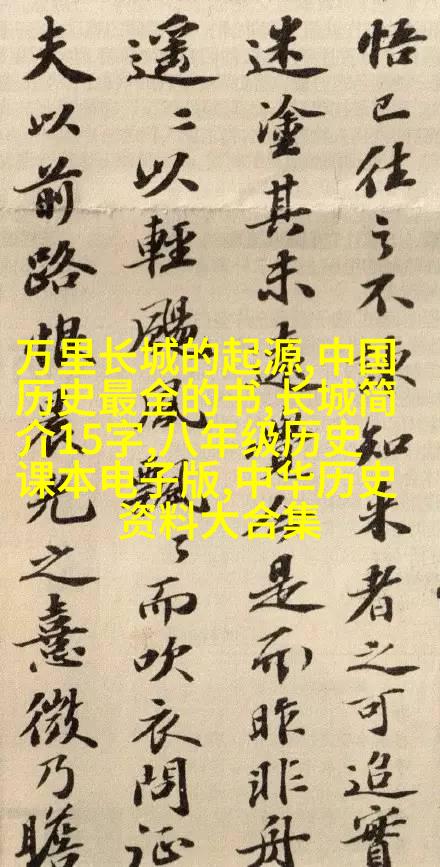 悟已往之不知來者之可追實
迷塗其未遠是而昨非舟
遥〻以輕颺風飄〻而吹衣問征
夫以前路恨光之熹微乃瞻
万里长城的起源,中国
历史最全的书,长城简
介15字,八年级历史
课本电子版,中华历史
资料大合集